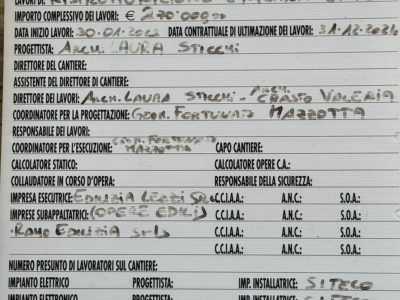 LAVORI DI:
IMPORTO COMPLESSIVO DEI LAVORI: € 270.000,00
DATA INIZIO LAVORI: 30.01.2023 DATA CONTRATTUALE DI ULTIMAZIONE DEI LAVORI: 31.12.2024
PROGETTISTA: ARCH. LAURA STICCHI
DIRETTORE DEL CANTIERE:
ASSISTENTE DEL DIRETTORE DI CANTIERE:
DIRETTORE DEI LAVORI: ARCH. LAURA STICCHI - ARCH. CRASTO VALERIA
COORDINATORE PER LA PROGETTAZIONE: GEOM. FORTUNATO MAZZOTTA
RESPONSABILE DEI LAVORI:
COORDINATORE PER L'ESECUZIONE: GEOM. FORTUNATO MAZZOTTA CAPO CANTIERE:
CALCOLATORE STATICO: CALCOLATORE OPERE C.A.:
COLLAUDATORE IN CORSO D'OPERA: RESPONSABILE DELLA SICUREZZA:
IMPRESA ESECUTRICE: EDILIZIA LEZZI SRL C.C.I.A.A.: A.N.C: S.O.A.:
IMPRESE SUBAPPALTATRICI: (OPERE EDILI) C.C.I.A.A.: A.N.C: S.O.A.:
EDILIZIA SRLS C.C.I.A.A.: A.N.C: S.O.A.:
C.C.I.A.A.: A.N.C: S.O.A.:
NUMERO PRESUNTO DI LAVORATORI SUL CANTIERE:
IMPIANTO ELETTRICO PROGETTISTA: IMP. INSTALLATRICE: SITECO
IMPIANTO ELETTRONICO PROGETTISTA: IMP. INSTALLATRICE: SITECO